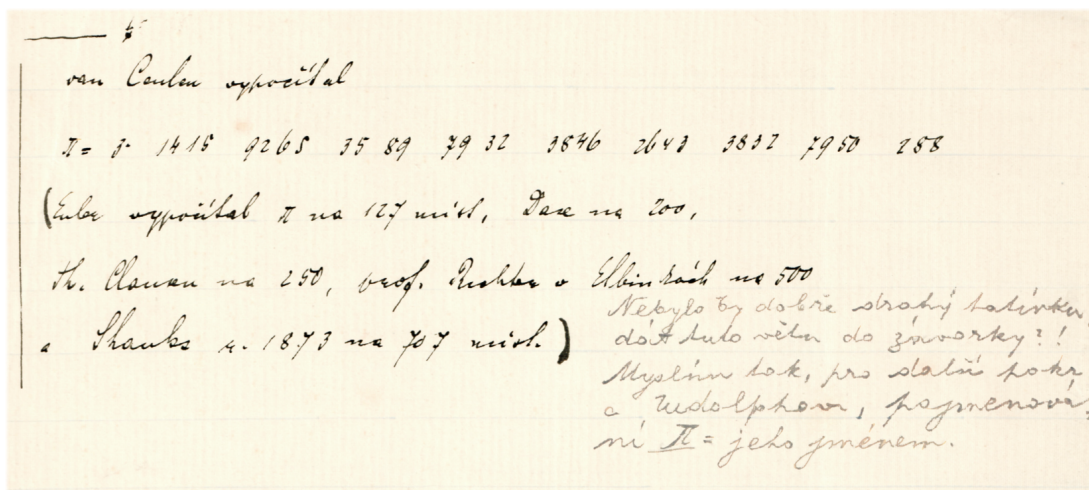 van Ceulen vypočítal
π = 3· 1415 9265 35 89 79 32 3846 2643 3832 79 50 288
(Euler vypočítal π na 127 míst, Dase na 200,
Th. Clausen na 250, prof. Richter v Elbinkách na 500
a Shanks r. 1873 na 707 míst.)
Nebylo by dobře drahý tatínku
dát tuto větu do závorky?!
Myslím tak, pro další pokr
a Rudolphovi, pojmenová
ní π = jeho jménem.